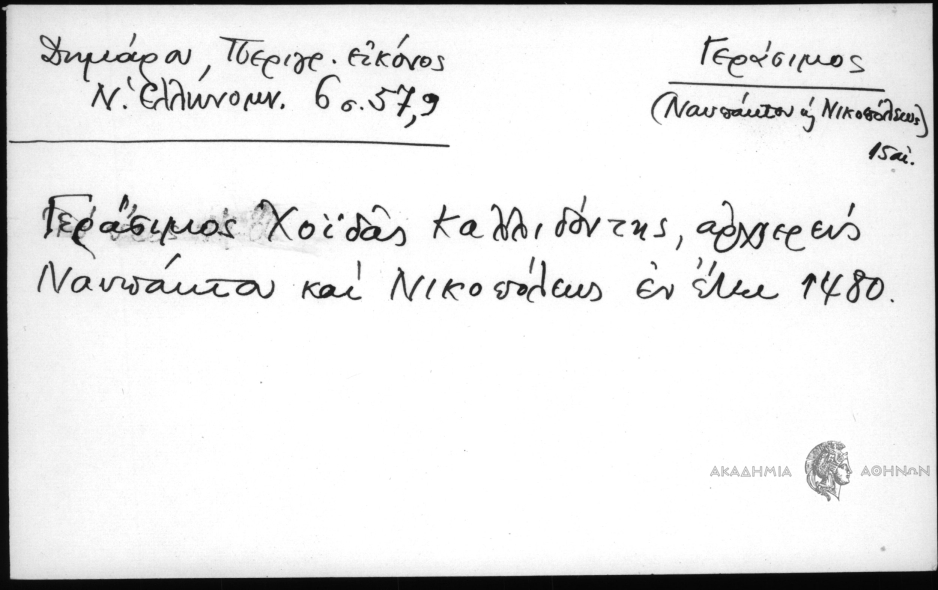 Δημάρου, Περιγρ. εἰκόνος
Ν. Ἑλληνομν. 6 σ. 57,9
Γεράσιμος
(Ναυπάκτου κ Νικοπόλεως)
15 αἰ.
Γεράσιμος Χοϊδᾶς Καλλιδόντης, ἀρχιερεύς
Ναυπάκτου καὶ Νικοπόλεως ἐν ἔτει 1480.
ΑΚΑΔΗΜΙΑ ΑΘΗΝΩΝ